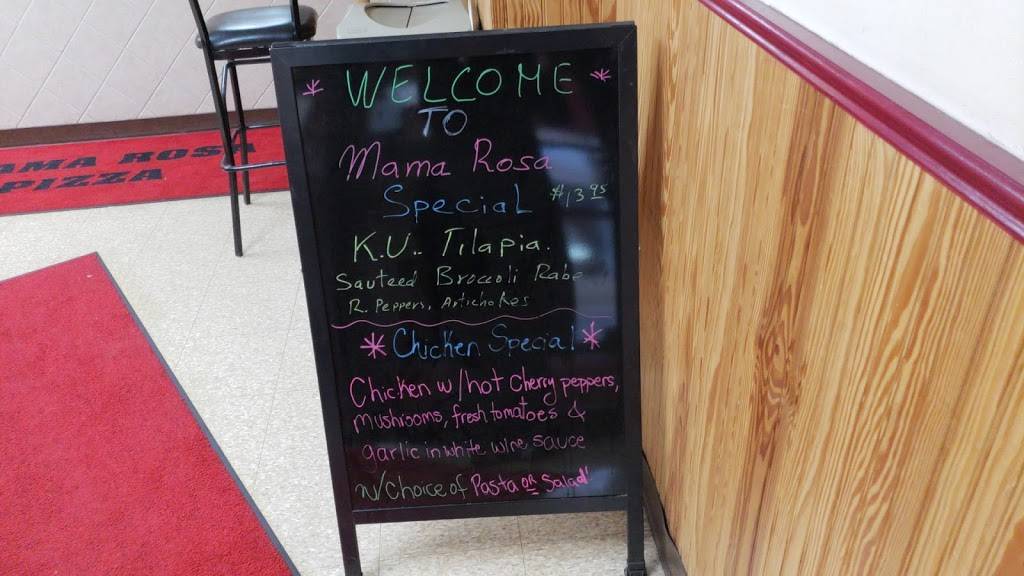 WELCOME
TO
Mama Rosa
Special $13.95
K.U.. Tilapia.
Sauteed Broccoli Rabe
R. Peppers, Artichokes
* Chicken Special *
Chicken w/hot Cherry peppers,
mushrooms, fresh tomatoes &
garlic in white wine sauce
w/Choice of Pasta or Salad
AMA ROSA
PIZZA